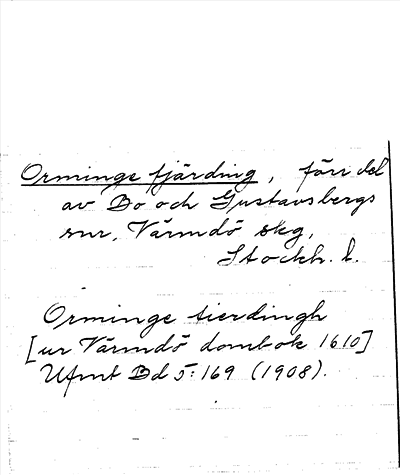 Orminge fjärding, förr del
av Bo och Gustavsbergs
snr, Värmdö skg,
Stockh. l.
Orminge tierdingh
[ur Värmdö dombok 1610]
Ufmt Bd 5:169 (1908).